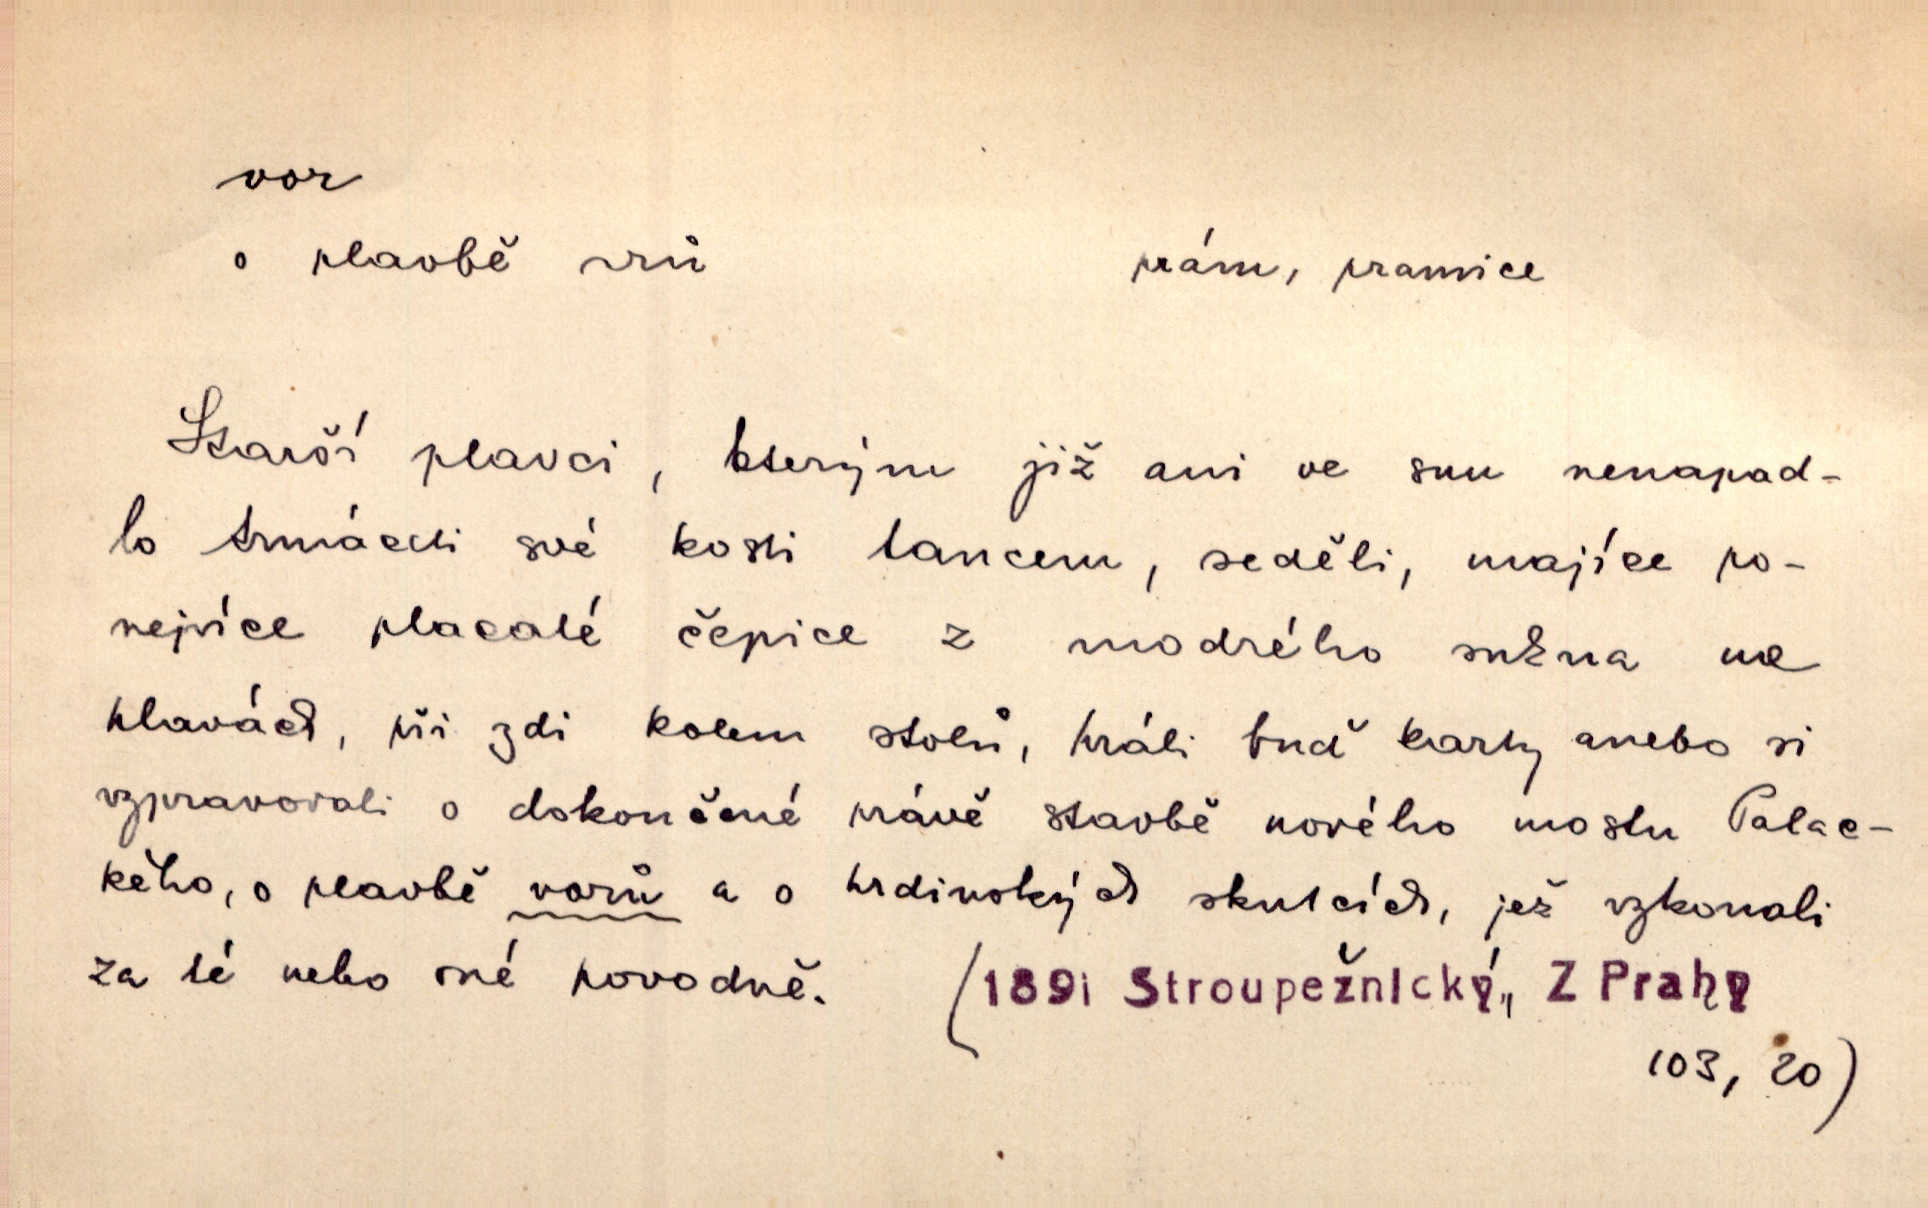 vor
o plavbě vrů
prám, pramice
Starší plavci, kterým již ani ve snu nenapad-
lo trmáceti své kosti tancem, seděli, majíce po-
nejvíce placaté čepice z modrého sukna na
hlavách, při zdi kolem stolů, hráli buď karty anebo si
vypravovali o dokončené právě stavbě nového mostu Palac-
kého, o plavbě vorů a o hrdinských skutcích, jež vykonali
za té nebo oné povodně. (1891 Stroupežnický, Z Prahy
103, 20)